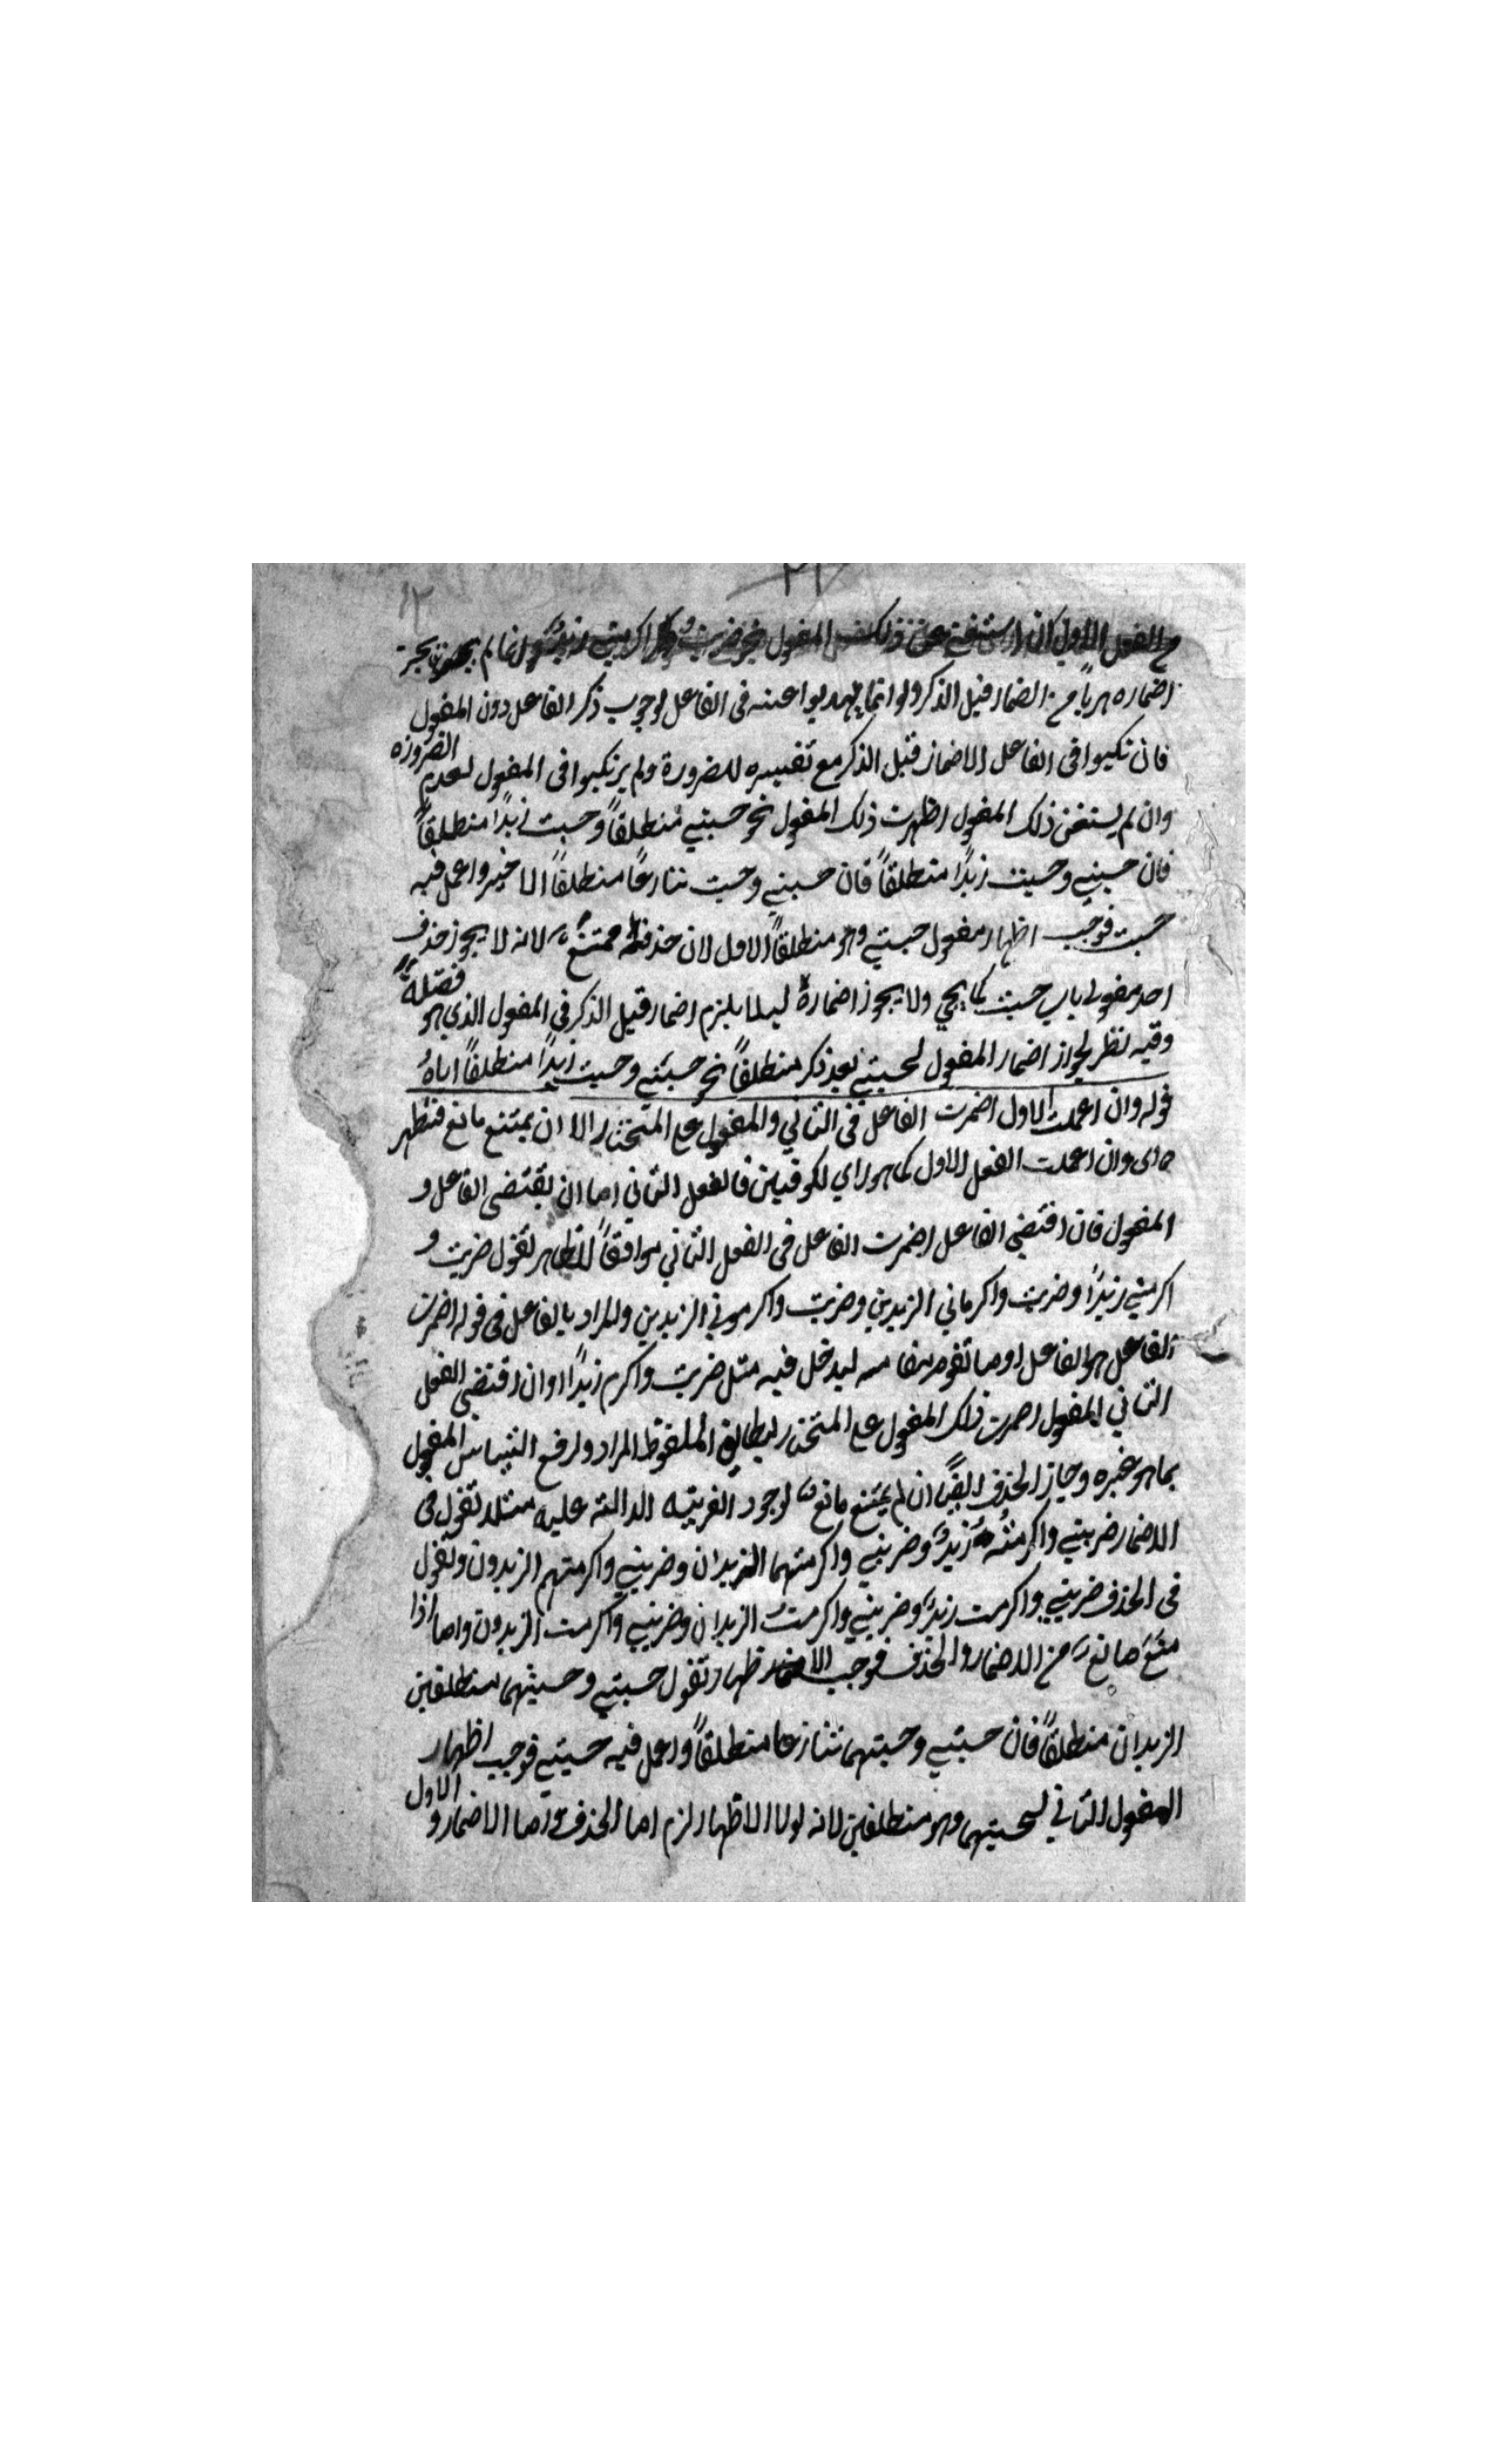 من الفعل الاول ان استغنى عن ذلك المفعول نحو ضربت واكرمني زيد وانما لم يجز
اضماره هربا من الضمار قبل الذكر ولو انما لوجوب ذكر الفاعل دون المفعول
فان تكبوا فى الفاعل الاضمار قبل الذكر مع تفسيره للضرورة ولم يرتكبوا فى المفعول لعدم الضرورة
وان لم يستغن ذلك المفعول اظهرت ذلك المفعول نحو حسبني منطلقاً وحسبت زيداً منطلقاً
فان حسبني وحسبت زيداً منطلقاً فان حسبني وحسبت تنازعا منطلقاً الاخير واعمل فيه
حسبت فوجب اظهار مفعول حسبني وهو منطلقاً الاول لان حذفه ممتنع لانه لا يجوز حذف
احد مفعولى باب حسبت كما يجي ولا يجوز اضماره ليلا يلزم اضمار قبل الذكر فى المفعول الذى هو فضلة
وفيه نظر لجواز اضمار المفعول لحسبني بعد ذكر منطلقاً نحو حسبني وحسبت زيداً منطلقاً اياه
قوله وان اعملت الاول اضمرت الفاعل فى الثاني والمفعول على المختار الا ان يمتنع مانع فتظهر
اى وان اعملت الفعل الاول كما هو راي لكوفيين فالفعل الثاني اما ان يقتضى الفاعل و
المفعول فان اقتضى الفاعل اضمرت الفاعل فى الفعل الثاني موافقاً للظاهر تقول ضربت و
اكرمني زيداً وضربت واكرماني الزيدين وضربت واكرموني الزيدين والمراد بالفاعل فى قوله اضمرت
الفاعل هو الفاعل او ما تقوم مقامه ليدخل فيه مثل ضربت واكرم زيداً وان اقتضى الفعل
الثاني المفعول اضمرت ذلك المفعول على المختار ليطابق الملفوظ المراد ولرفع التباس المفعول
بما هو غيره وجاز الحذف ايضاً ان لم يمتنع مانع لوجود القرينة الدالة عليه مثلا تقول فى
الاضمار ضربني واكرمته زيد وضربني واكرمتهما الزيدان وضربني واكرمتهم الزيدون وتقول
فى الحذف ضربني واكرمت زيد وضربني واكرمت الزيدان وضربني واكرمت الزيدون واما اذا
منع مانع من الاضمار والحذف فوجب الاظهار وتقول حسبني وحسبتهما منطلقين
الزيدان منطلقاً فان حسبني وحسبتهما تنازعا منطلقاً واعمل فيه حسبني فوجب اظهار
المفعول الثاني لحسبتهما وهو منطلقين لانه لولا الاظهار لزم اما الحذف واما الاضمار و الاول